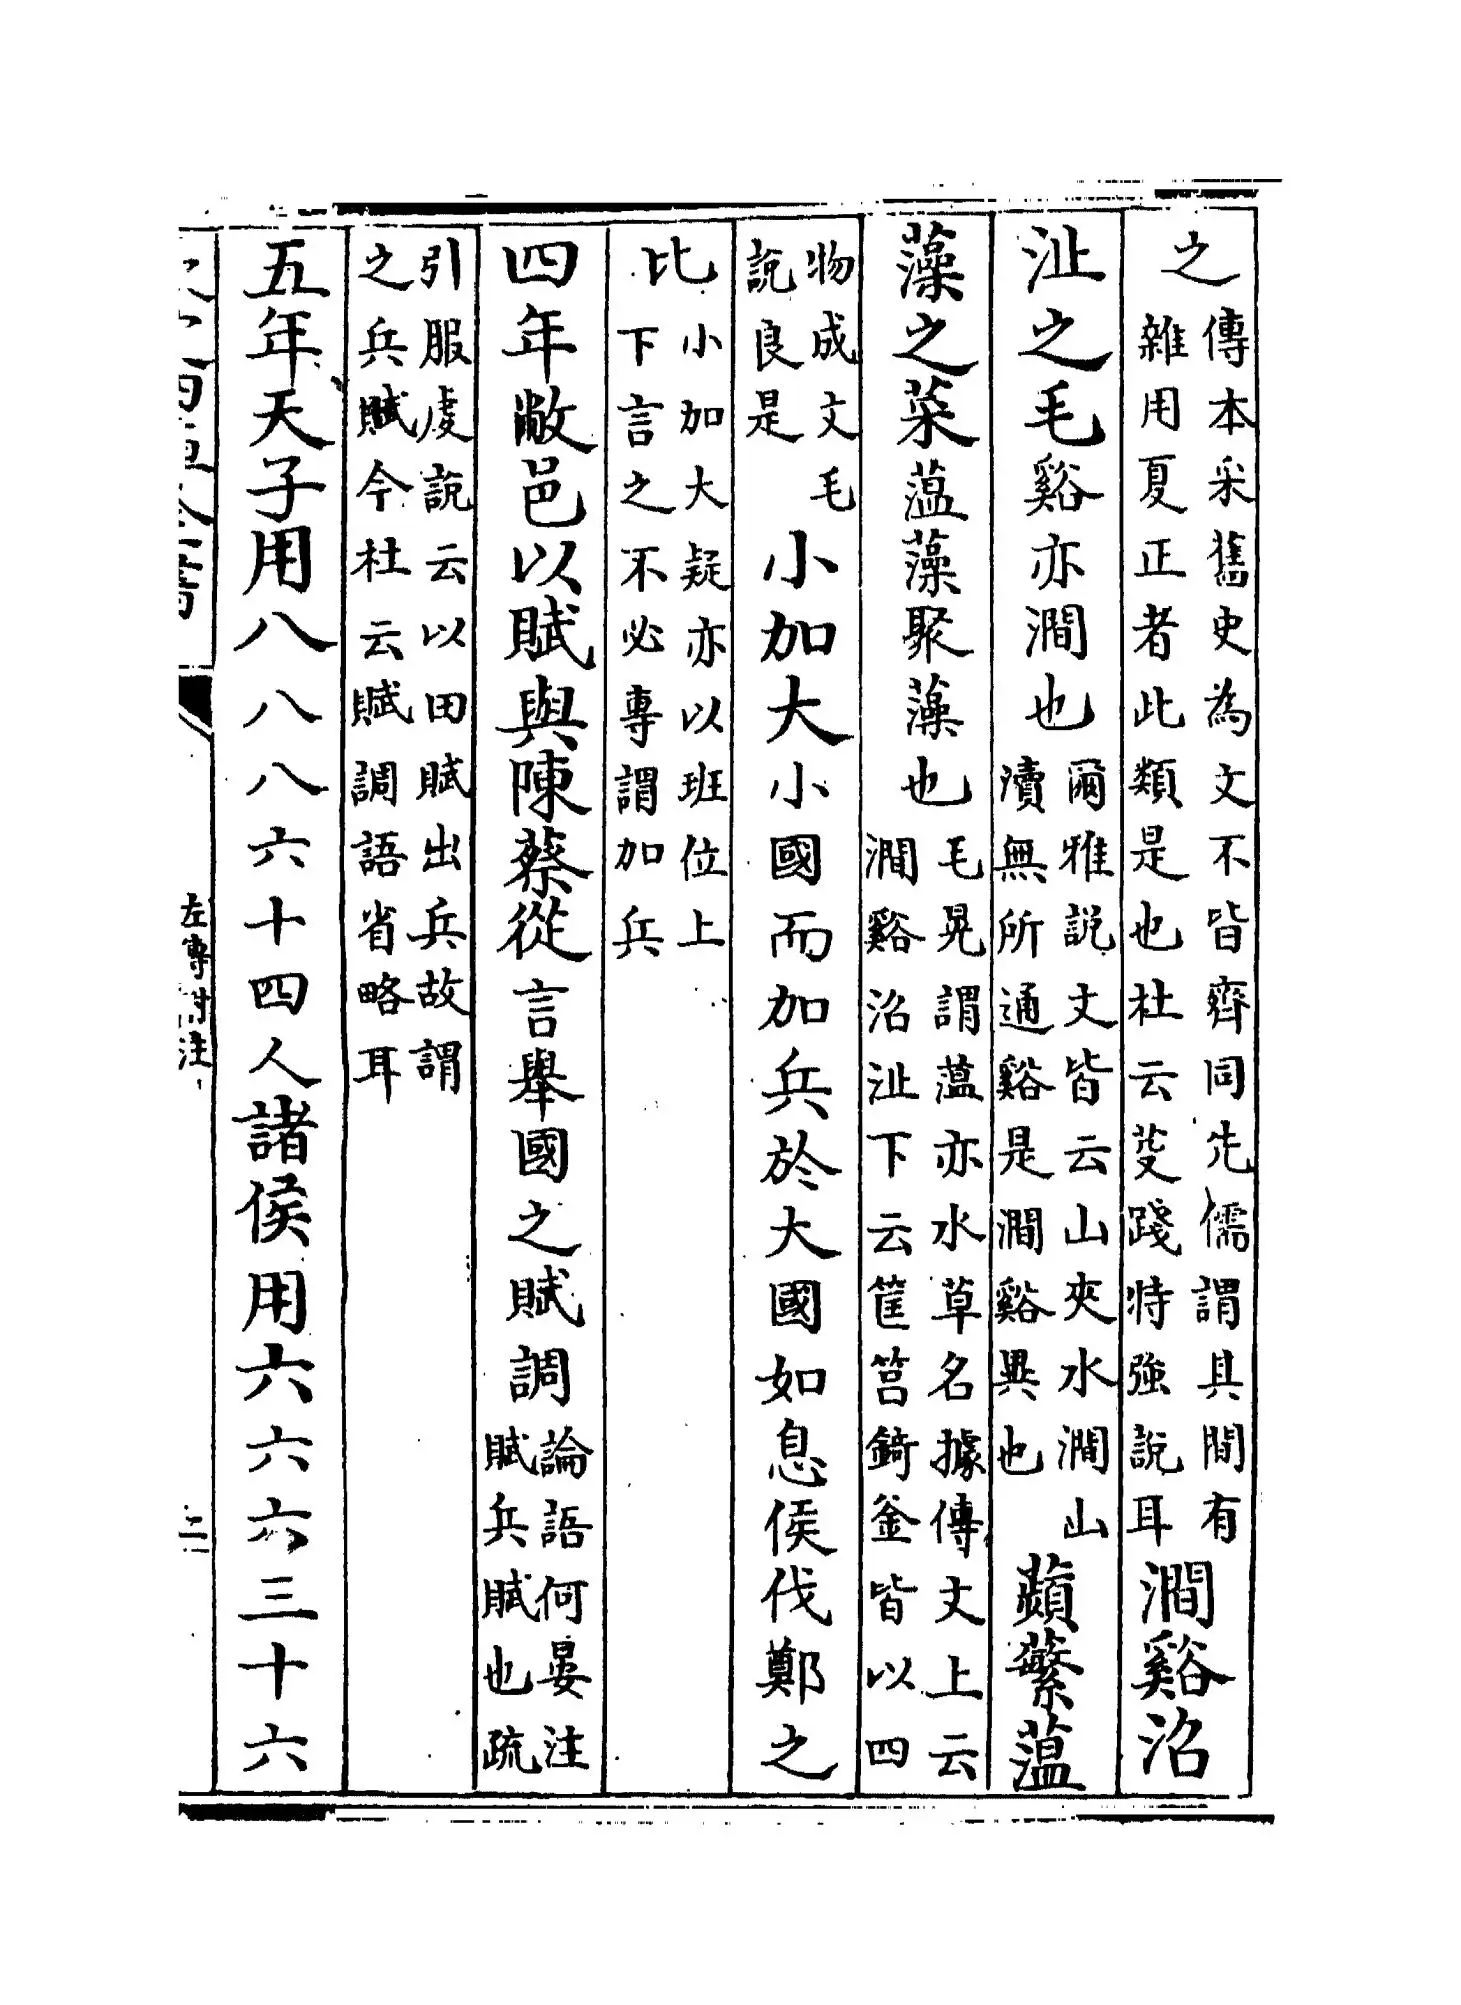 之傳本采舊史為文不皆齊同先儒謂其間有雜用夏正者此類是也杜云芟踐特強說耳澗谿沼
沚之毛谿亦澗也爾雅說文皆云山夾水澗山瀆無所通谿是澗谿異也蘋蘩薀
藻之菜薀藻聚藻也毛晃謂薀亦水草名據傳文上云澗谿沼沚下云筐筥錡釜皆以四
物成文毛說良是小加大小國而加兵於大國如息侯伐鄭之
比小加大疑亦以班位上下言之不必專謂加兵
四年敝邑以賦與陳蔡從言舉國之賦調論語何晏注賦兵賦也疏
引服虔說云以田賦出兵故謂之兵賦今杜云賦調語省略耳
五年天子用八八八六十四人諸侯用六六六三十六
左傳附注
二